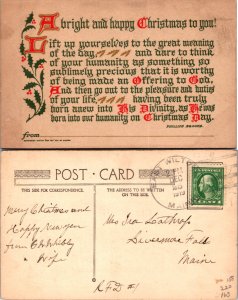 A bright and happy Christmas to you!
Lift up yourselves to the great meaning
of the day, and dare to think
of your humanity as something so
sublimely precious that it is worthy
of being made an Offering to God
And then go out to the pleasure and duties
of your life, having been truly
born anew into His Divinity, as He was
born into our humanity on Christmas Day.
PHILLIPS BROOKS.
from
POST CARD
THIS SIDE FOR CORRESPONDENCE.
THE ADDRESS TO BE WRITTEN ON THIS SIDE.
Merry Christmas and
Happy New year
from
wife
Mrs Lathrop
Livermore Falls
Maine
R.F.D. #1